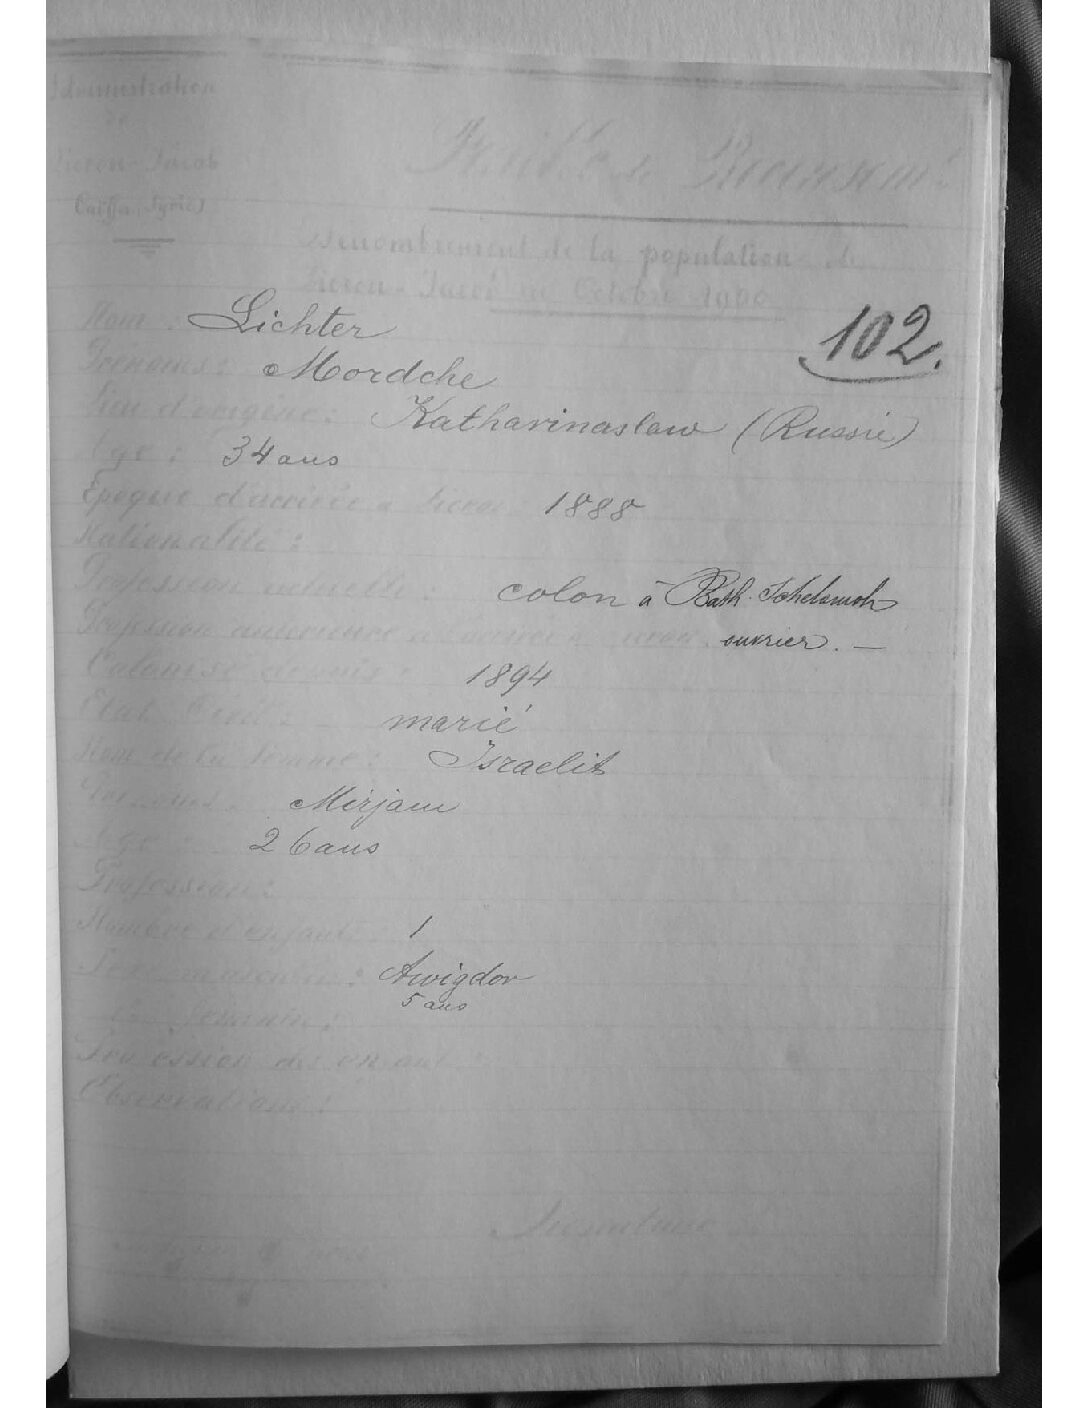 Administration
de
Zicron-Jacob
Caïffa (Syrie)
Feuille de Recensemt
Dénombrement de la population de
Zicron-Jacob en Octobre 1900
102.
Nom : Lichter
Prénoms : Mordche
Lieu d'origine : Katharinaslaw (Russie)
Age : 34 ans
Epoque d'arrivée à Zicron : 1888
Nationalité :
Profession actuelle : colon à Bath. Schelomoh
Profession antérieure à ouvrier. —
Colonisé depuis : 1894
Etat Civil : marié
Nom de la femme : Israelit
Prénoms : Mirjam
Age : 26 ans
Profession :
Nombre d'enfants : 1
Sexe masculin : Awigdor
5 ans
féminin :
Profession des enfants :
Observations :
Signature